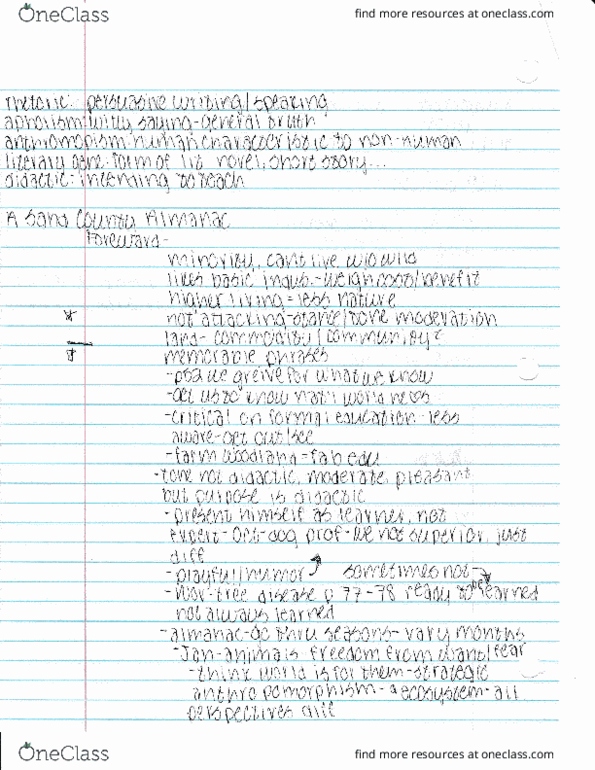 OneClass
find more resources at oneclass.com
rhetoric: persuasive writing/speaking
aphorism: witty saying-general truth
anthromopism: human characteristic to non-human
literary genre-form of lit. novel, short story...
didactic: intending to teach
A Sand County Almanac
Foreward-
minority, cant live w/o wild
likes basic indus.-weigh cost/benefit
higher living = less nature
* not attacking-stance/tone moderation
land- commodity/community?
* memorable phrases
-p52 we greive for what we know
-get us to know nat'l world
-critical on formal education-less
aware-get out/see
-farm woodland=fab edu
-tone not didactic, moderate, pleasant
but purpose is didactic
-present himself as learner, not
expert-Oct-dog prof-we not superior, just
diff
-playful/humor sometimes not
-Nov-tree disease p 77-78 ready to be learned
not always learned
-almanac-go thru seasons-vary months
-Jan-animals freedom from want/fear
-think world is for them-strategic
anthropomorphism-ecosystem-all
perspectives diff
OneClass
find more resources at oneclass.com